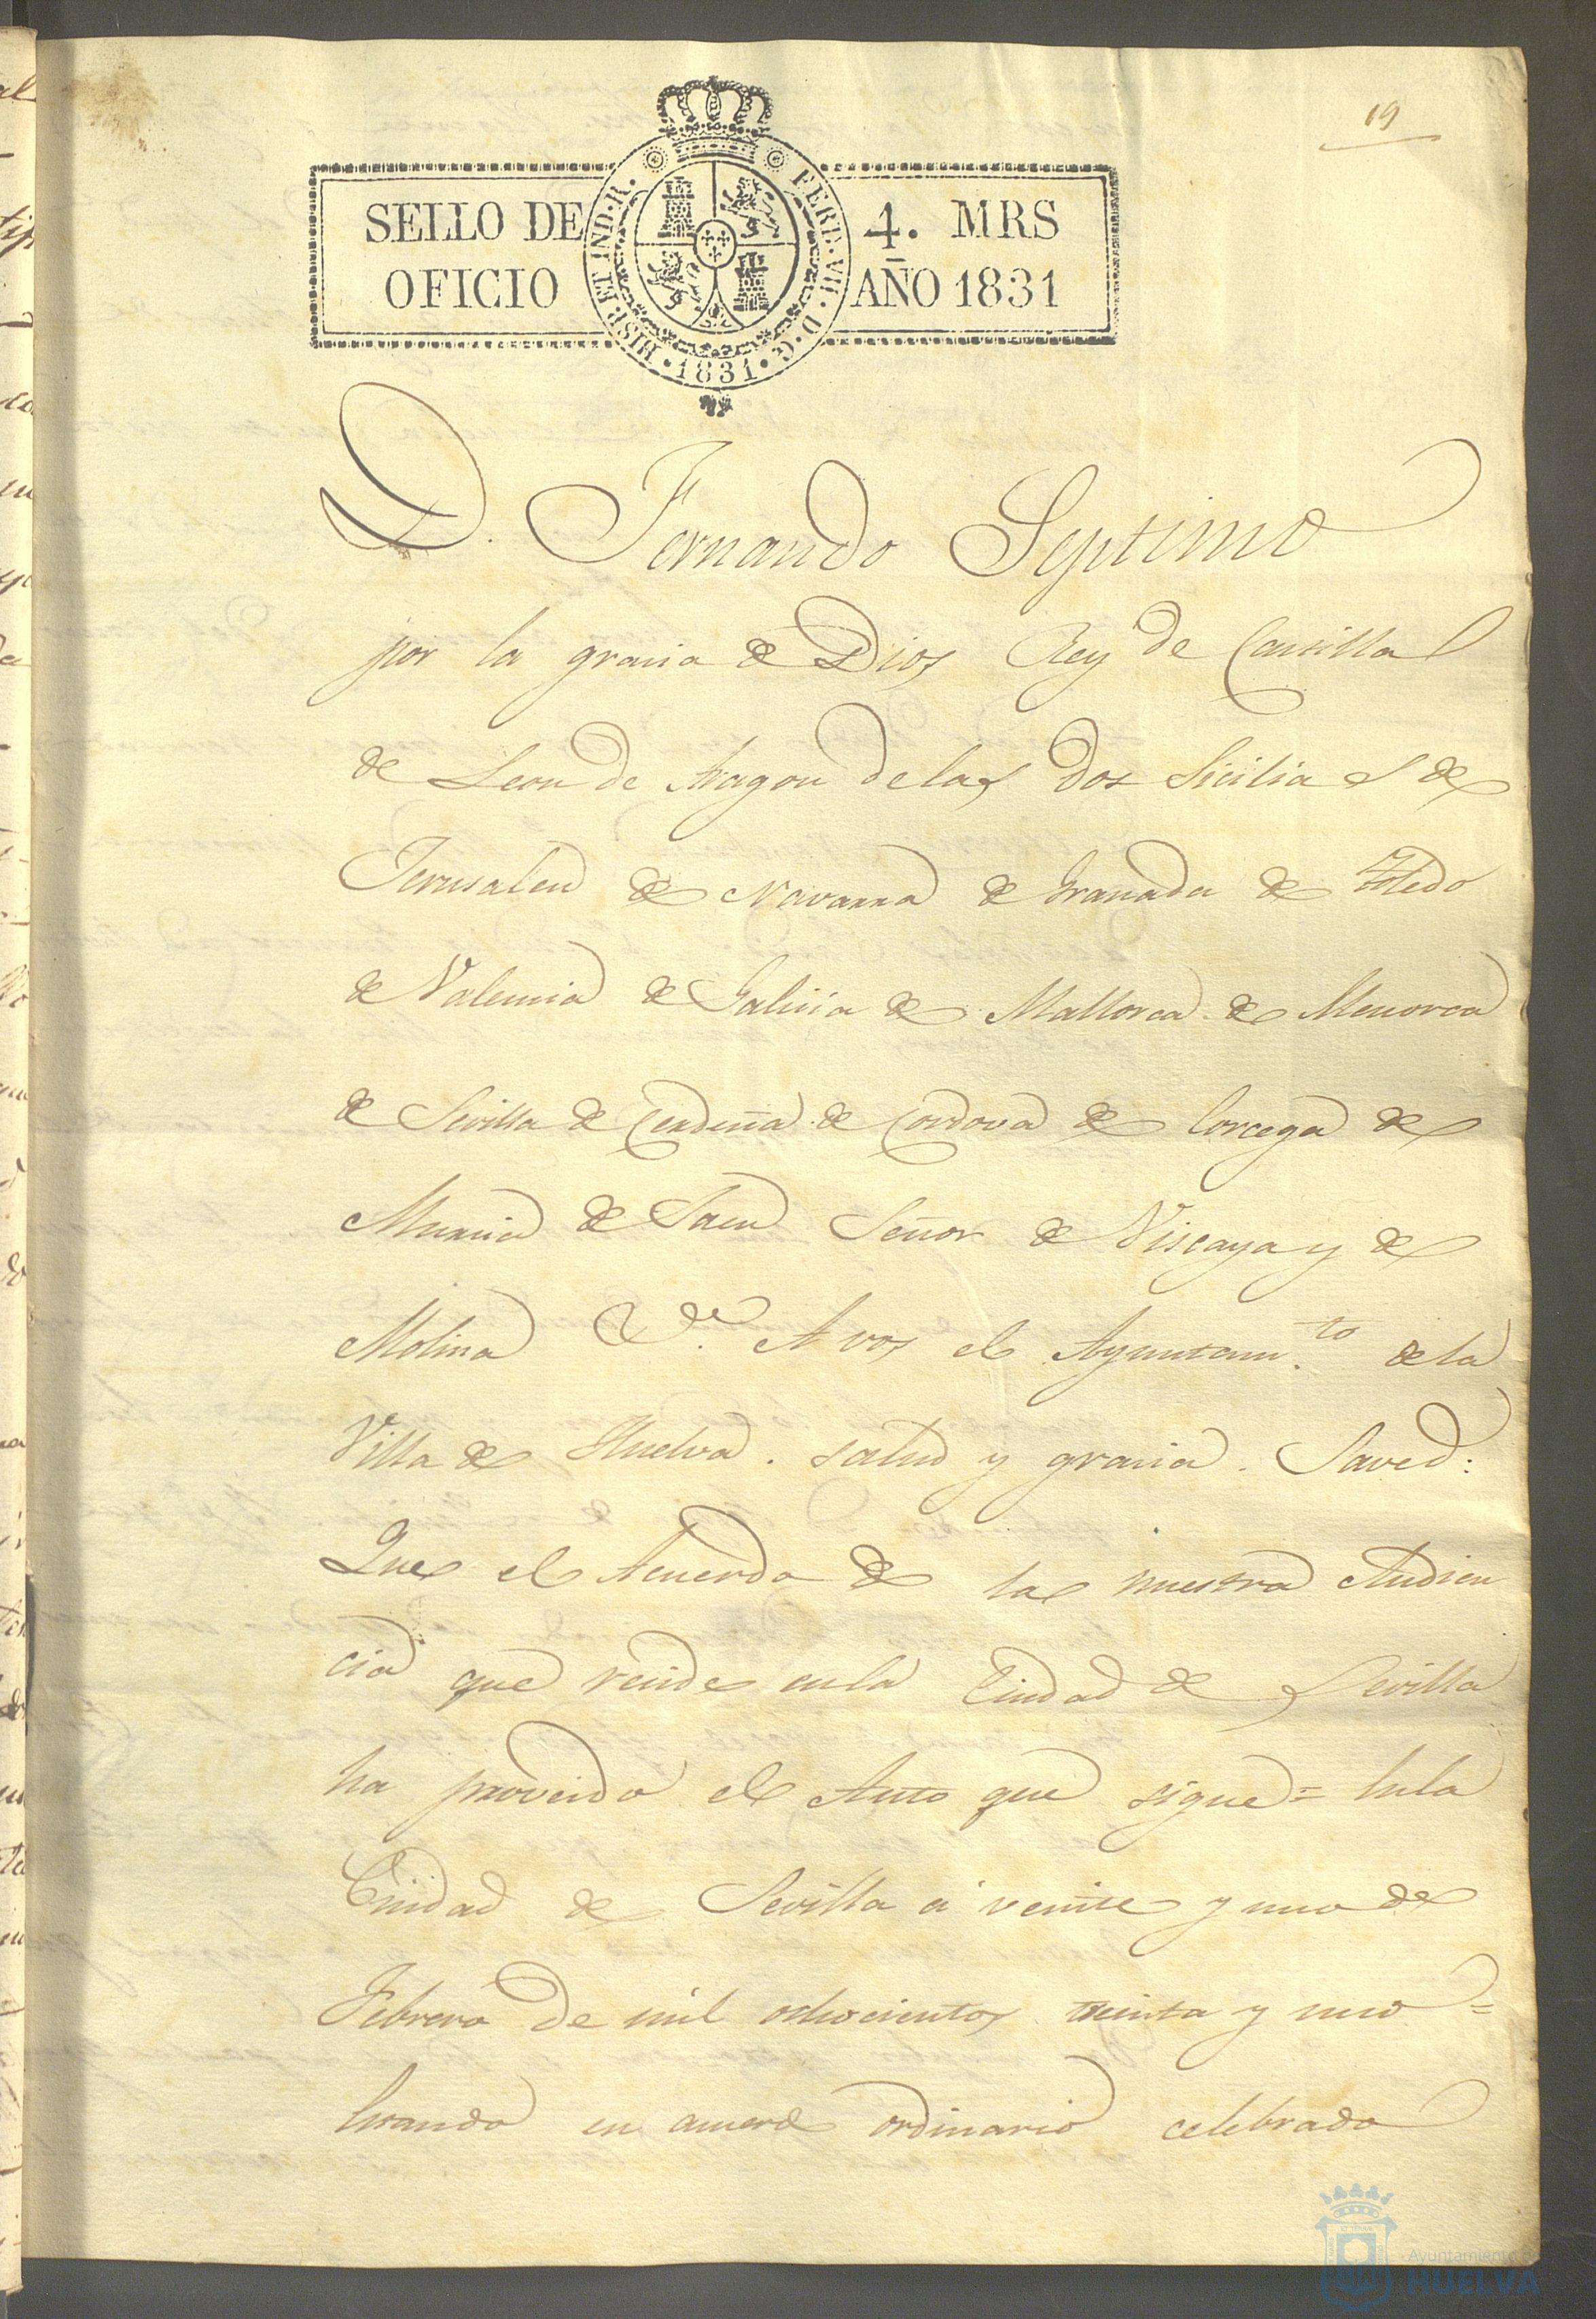 19
SELLO DE 4. MRS
OFICIO AÑO 1831
HISP. ET IND. R. FERD. VII. D. G. 1831
D. Fernando Septimo
por la gracia de Dios Rey de Castilla
de Leon de Aragon de las dos Sicilias de
Jerusalen de Navarra de Granada de Toledo
de Valencia de Galicia de Mallorca de Menorca
de Sevilla de Cerdeña de Cordova de Corcega de
Murcia de Jaen Señor de Viscaya y de
Molina &. A vos el Ayuntam.to de la
Villa de Huelva. salud y gracia. Saved:
Que el Acuerdo de la nuestra Audien
cia que reside en la Ciudad de Sevilla
ha proveido el Auto que sigue = En la
Ciudad de Sevilla á veinte y uno de
Febrero de mil ochocientos treinta y uno =
Estando en acuerd ordinario celebrado
Ayuntamiento
HUELVA